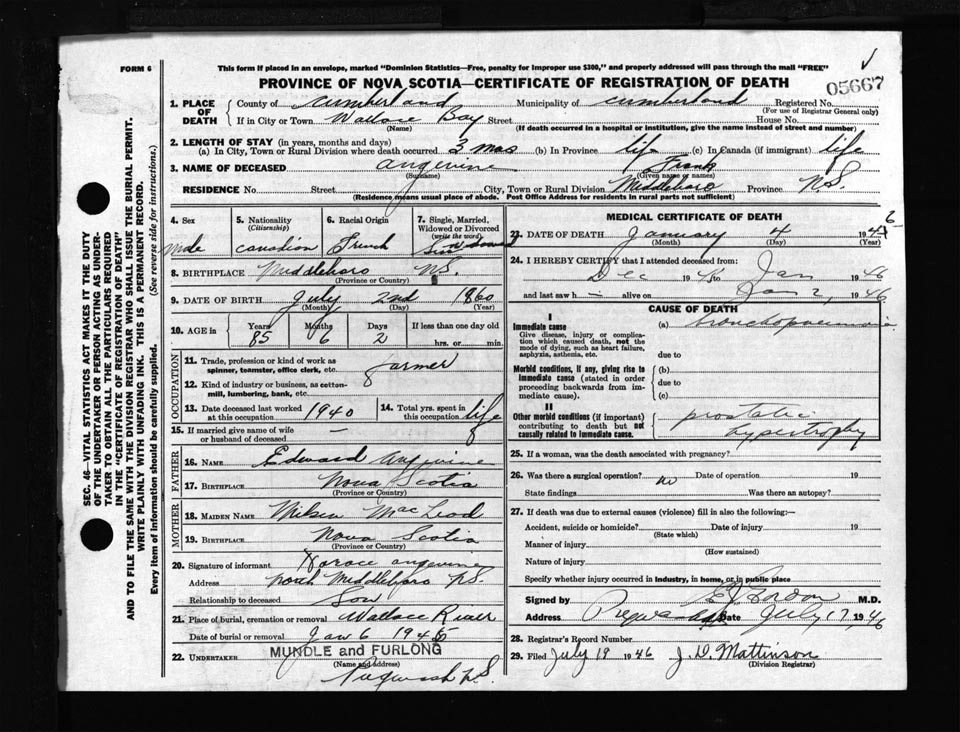 FORM 6
This form if placed in an envelope, marked "Dominion Statistics—Free, penalty for improper use $300," and properly addressed will pass through the mail "FREE"
PROVINCE OF NOVA SCOTIA—CERTIFICATE OF REGISTRATION OF DEATH
05667
1. PLACE OF DEATH County of Cumberland Municipality of Cumberland Registered No.
(For use of Registrar General only)
If in City or Town Wallace Bay Street House No.
(Name) (If death occurred in a hospital or institution, give the name instead of street and number)
2. LENGTH OF STAY (in years, months and days)
(a) In City, Town or Rural Division where death occurred 3 mos (b) In Province life (c) In Canada (if immigrant) life
3. NAME OF DECEASED Angevine Frank
(Surname) (Given name or names)
RESIDENCE No. Street City, Town or Rural Division Middleboro Province N.S.
(Residence means usual place of abode. Post Office Address for residents in rural parts not sufficient)
4. Sex Male
5. Nationality (Citizenship) Canadian
6. Racial Origin French
7. Single, Married, Widowed or Divorced (write the word) Widowed
8. BIRTHPLACE Middleboro N.S.
(Province or Country)
9. DATE OF BIRTH July 2nd 1860
(Month) (Day) (Year)
10. AGE in Years 85 Months 6 Days 2 If less than one day old hrs. or min.
OCCUPATION
11. Trade, profession or kind of work as spinner, teamster, office clerk, etc. farmer
12. Kind of industry or business, as cotton-mill, lumbering, bank, etc.
13. Date deceased last worked at this occupation 1940
14. Total yrs. spent in this occupation life
15. If married give name of wife or husband of deceased —
FATHER
16. NAME Edward Angevine
17. BIRTHPLACE Nova Scotia
(Province or Country)
MOTHER
18. MAIDEN NAME MacLeod
19. BIRTHPLACE Nova Scotia
(Province or Country)
20. Signature of informant Horace Angevine
Address North Middleboro N.S.
Relationship to deceased Son
21. Place of burial, cremation or removal Wallace River
Date of burial or removal Jan 6 1945
22. UNDERTAKER MUNDLE and FURLONG
(Name and address)
Pugwash N.S.
MEDICAL CERTIFICATE OF DEATH
23. DATE OF DEATH January 4 1946
(Month) (Day) (Year)
24. I HEREBY CERTIFY that I attended deceased from:
Dec 1945 to Jan 1946
and last saw h — alive on Jan 2, 1946
CAUSE OF DEATH
I
Immediate cause (a) bronchopneumonia
Give disease, injury or complication which caused death, not the mode of dying, such as heart failure, asphyxia, asthenia, etc.
due to
Morbid conditions, if any, giving rise to immediate cause (stated in order proceeding backwards from immediate cause).
(b)
due to
(c)
II
Other morbid conditions (if important) contributing to death but not causally related to immediate cause.
prostatic
hypertrophy
25. If a woman, was the death associated with pregnancy?
26. Was there a surgical operation? no Date of operation 19
State findings Was there an autopsy?
27. If death was due to external causes (violence) fill in also the following:—
Accident, suicide or homicide? Date of injury 19
(State which)
Manner of injury
(How sustained)
Nature of injury
Specify whether injury occurred in industry, in home, or in public place
Signed by Gordon M.D.
Address Pugwash Date July 17 1946
28. Registrar's Record Number
29. Filed July 19 1946 J. D. Mattinson
(Division Registrar)
SEC. 46—VITAL STATISTICS ACT MAKES IT THE DUTY
OF THE UNDERTAKER OR PERSON ACTING AS UNDERTAKER TO OBTAIN ALL THE PARTICULARS REQUIRED
IN THE "CERTIFICATE OF REGISTRATION OF DEATH"
AND TO FILE THE SAME WITH THE DIVISION REGISTRAR WHO SHALL ISSUE THE BURIAL PERMIT.
WRITE PLAINLY WITH UNFADING INK. THIS IS A PERMANENT RECORD.
Every item of information should be carefully supplied. (See reverse side for instructions.)